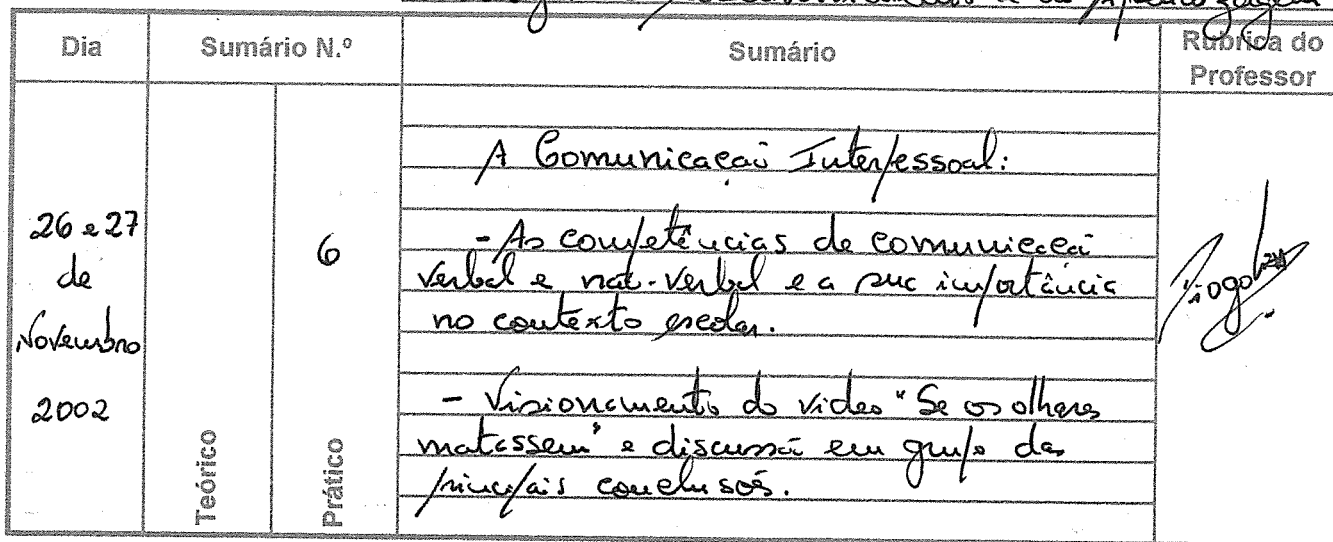 Desenvolvimento e da Aprendizagem
Dia
Sumário N.º
Sumário
Rúbrica do
Professor
26 e 27
de
Novembro
2002
Teórico
6
Prático
A Comunicação Interpessoal:
- As competências de comunicação
verbal e não-verbal e a sua importância
no contexto escolar.
- Visionamento do vídeo "Se os olhares
matassem" e discussão em grupo das
principais conclusões.
Diogo